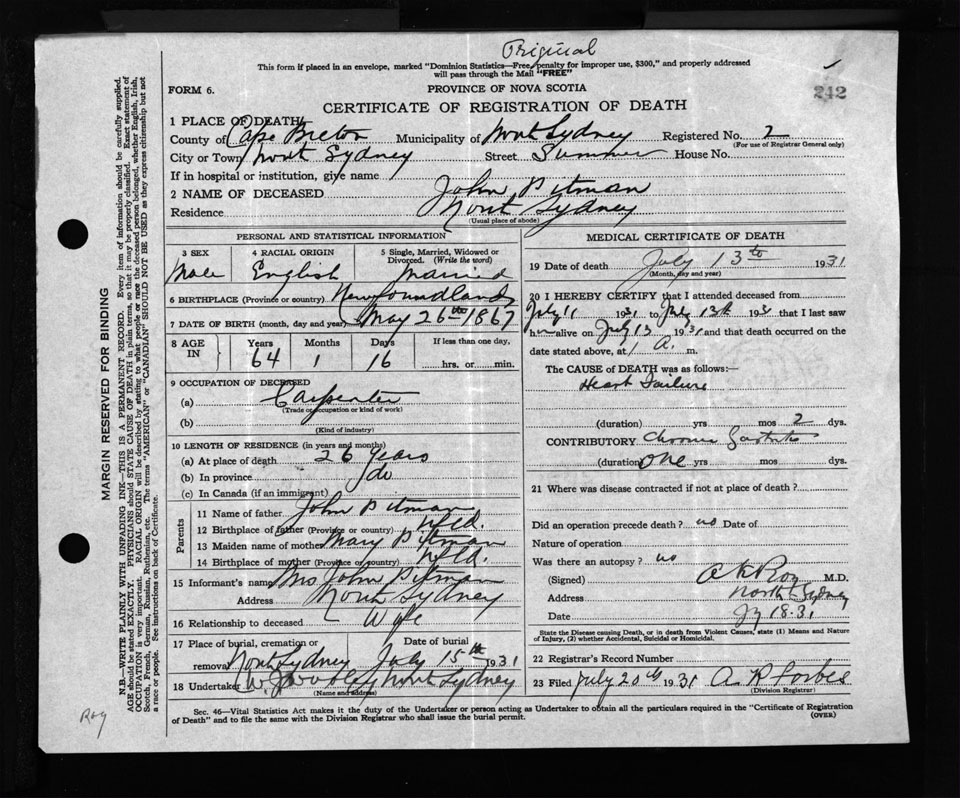 Original
This form if placed in an envelope, marked "Dominion Statistics—Free, penalty for improper use, $300," and properly addressed
will pass through the Mail "FREE"
242
FORM 6.
PROVINCE OF NOVA SCOTIA
CERTIFICATE OF REGISTRATION OF DEATH
1 PLACE OF DEATH
County of Cape Breton Municipality of North Sydney Registered No. 2
(For use of Registrar General only)
City or Town North Sydney Street Summer House No.
If in hospital or institution, give name
2 NAME OF DECEASED John Pitman
Residence North Sydney
(Usual place of abode)
PERSONAL AND STATISTICAL INFORMATION
3 SEX 4 RACIAL ORIGIN 5 Single, Married, Widowed or
Divorced. (Write the word)
Male English Married
6 BIRTHPLACE (Province or country) Newfoundland
7 DATE OF BIRTH (month, day and year) May 26th 1867
8 AGE IN Years Months Days If less than one day,
64 1 16 hrs. or min.
9 OCCUPATION OF DECEASED
(a) Carpenter
(Trade occupation or kind of work)
(b)
(Kind of industry)
10 LENGTH OF RESIDENCE (in years and months)
(a) At place of death 26 Years
(b) In province do
(c) In Canada (if an immigrant)
Parents
11 Name of father John Pitman
12 Birthplace of father (Province or country) Nfld.
13 Maiden name of mother Mary Pitman
14 Birthplace of mother (Province or country) Nfld.
15 Informant's name Mrs John Pitman
Address North Sydney
16 Relationship to deceased Wife
17 Place of burial, cremation or Date of burial
removal North Sydney July 15th 1931
18 Undertaker North Sydney
(Name and address)
MEDICAL CERTIFICATE OF DEATH
19 Date of death July 13th 1931
(Month, day and year)
20 I HEREBY CERTIFY that I attended deceased from
July 11 1931 to July 13th 1931 that I last saw
him alive on July 13 1931 and that death occurred on
date stated above, at 1 A. m.
The CAUSE of DEATH was as follows:—
Heart Failure
(duration) yrs mos 2 dys.
CONTRIBUTORY Chronic Gastritis
(duration) one yrs mos dys.
21 Where was disease contracted if not at place of death?
Did an operation precede death? no Date of
Nature of operation
Was there an autopsy? no
(Signed) Roy M.D.
Address North Sydney
Date Jy 18.31
State the Disease causing Death, or in death from Violent Causes, state (1) Means and Nature
of Injury, (2) whether Accidental, Suicidal or Homicidal.
22 Registrar's Record Number
23 Filed July 20th 1931 A R Forbes
(Division Registrar)
Sec. 46—Vital Statistics Act makes it the duty of the Undertaker or person acting as Undertaker to obtain all the particulars required in the "Certificate of Registration
of Death" and to file the same with the Division Registrar who shall issue the burial permit.
(OVER)
MARGIN RESERVED FOR BINDING
N.B.—WRITE PLAINLY WITH UNFADING INK—THIS IS A PERMANENT RECORD. Every item of information should be carefully supplied.
AGE should be stated EXACTLY. PHYSICIANS should STATE CAUSE OF DEATH in plain terms, so that it may be properly classified. Exact statement of
OCCUPATION is very important. RACIAL ORIGIN will be described by stating to what people or race the deceased person belonged, whether English, Irish,
Scotch, French, German, Russian, Ruthenian, etc. The terms "AMERICAN" or "CANADIAN" SHOULD NOT BE USED as they express citizenship but not
a race or people. See instructions on back of Certificate.
Roy